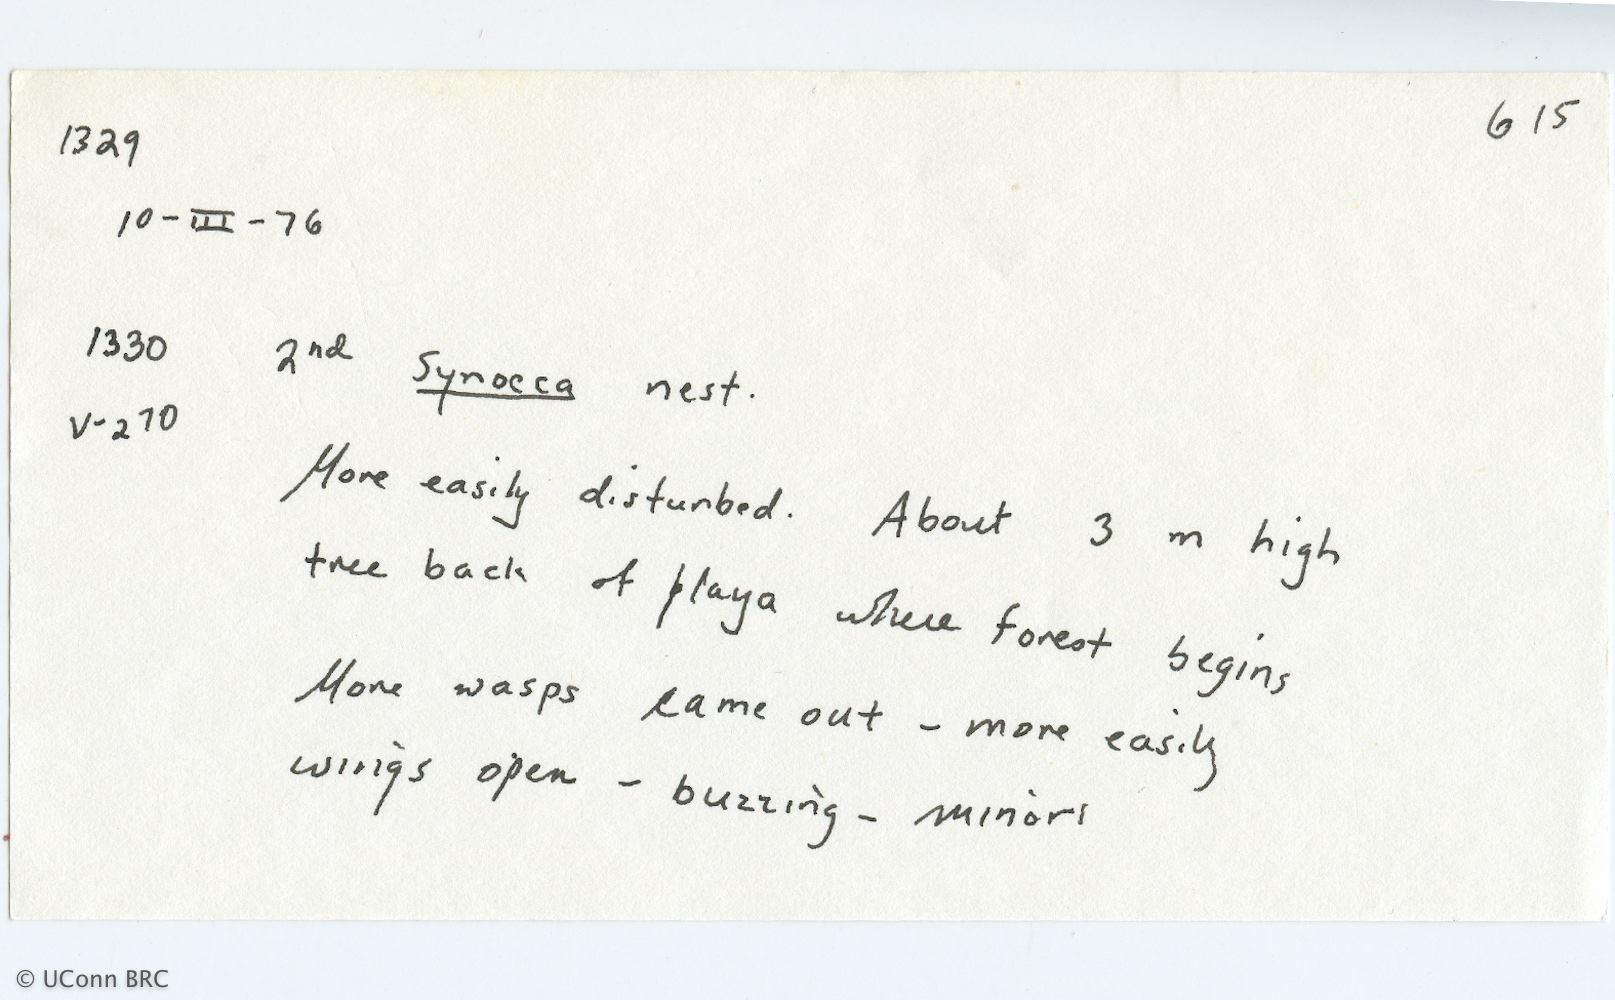 1329
615
10-III-76
1330 2nd Synocca nest.
V-270
More easily disturbed. About 3 m high
tree back of playa where forest begins
More wasps came out - more easily
wings open - buzzing -
© UConn BRC